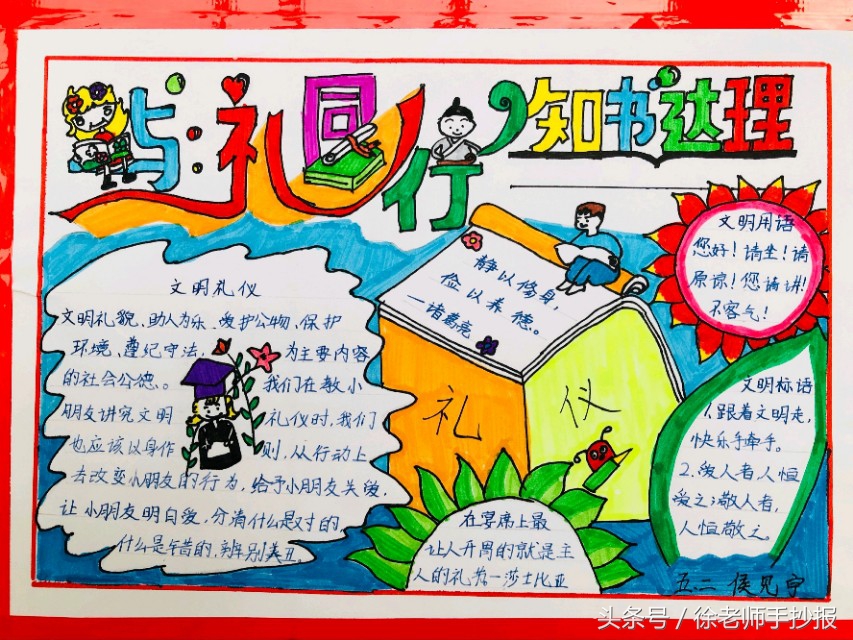 与礼同行
知书达理
文明礼仪
文明礼貌、助人为乐、爱护公物、保护
环境、遵纪守法、为主要内容
的社会公德。我们在教小
朋友讲究文明礼仪时,我们
也应该以身作则,从行动上
去改变小朋友的行为,给予小朋友关爱,
让小朋友明白爱,分清什么是对的,
什么是错的,辨别美丑。
静以修身,
俭以养德。
—诸葛亮
礼仪
在宴席上最
让人开胃的就是主
人的礼节—莎士比亚
文明用语
您好!请坐!请
原谅!您请讲!
不客气!
文明标语
1.跟着文明走,
快乐手牵手。
2.爱人者,人恒
爱之;敬人者,
人恒敬之
五.二 侯见宁
头条号/徐老师手抄报